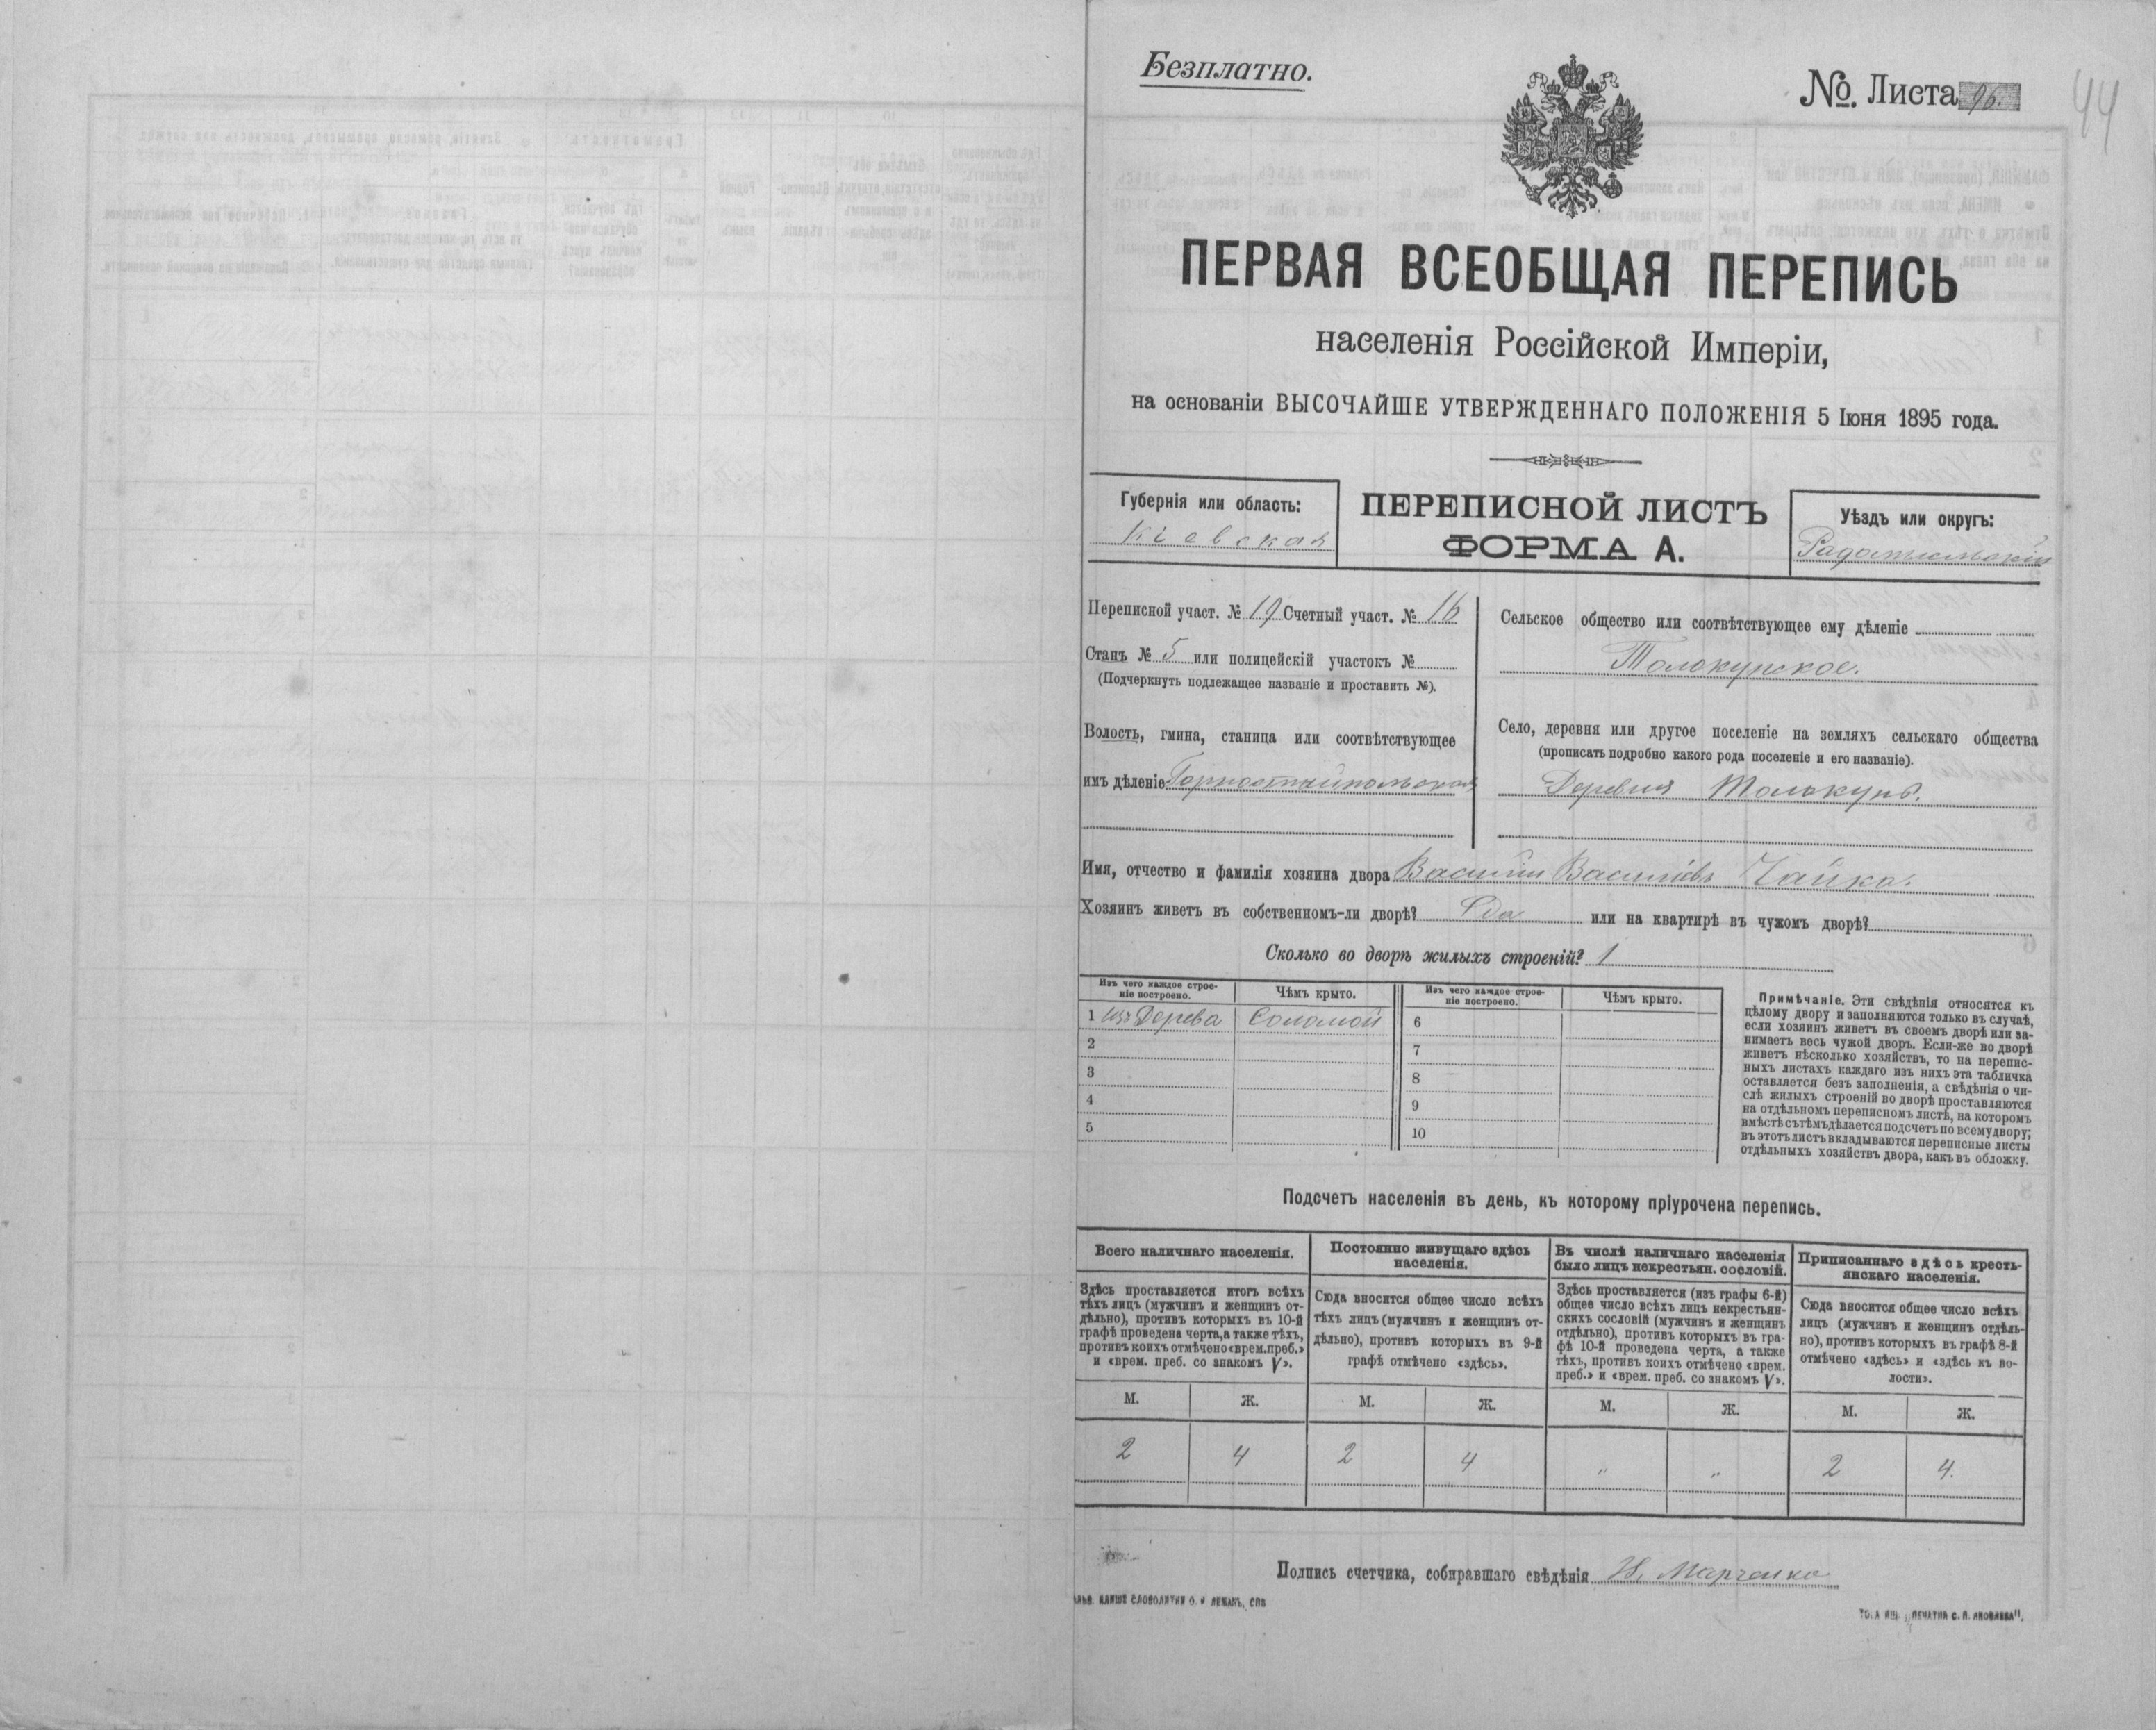 Безплатно.
№ Листа 96.
44
ПЕРВАЯ ВСЕОБЩАЯ ПЕРЕПИСЬ
населенія Россійской Имперіи,
на основаніи ВЫСОЧАЙШЕ УТВЕРЖДЕННАГО ПОЛОЖЕНІЯ 5 Іюня 1895 года.
Губернія или область:
Кіевская
ПЕРЕПИСНОЙ ЛИСТЪ
ФОРМА А.
Уѣздъ или округъ:
Радомысльскій
Переписной участ. № 19 Счетный участ. № 16
Станъ № 5 или полицейскій участокъ №
(Подчеркнуть подлежащее названіе и проставить №).
Волость, гмина, станица или соотвѣтствующее
имъ дѣленіе Горностайпольская
Сельское общество или соотвѣтствующее ему дѣленіе
Толокунское.
Село, деревня или другое поселеніе на земляхъ сельскаго общества
(прописать подробно какого рода поселеніе и его названіе).
Деревня Толокунь.
Имя, отчество и фамилія хозяина двора Василій Васильевъ Чайка.
Хозяинъ живетъ въ собственномъ-ли дворѣ? Да или на квартирѣ въ чужомъ дворѣ?
Сколько во дворѣ жилыхъ строеній? 1
Изъ чего каждое строе-
ніе построено.
Чѣмъ крыто.
Изъ чего каждое строе-
ніе построено.
Чѣмъ крыто.
1 изъ Дерева Соломой 6
2 7
3 8
4 9
5 10
Примѣчаніе. Эти свѣдѣнія относятся къ
цѣлому двору и заполняются только въ случаѣ,
если хозяинъ живетъ въ своемъ дворѣ или за-
нимаетъ весь чужой дворъ. Если-же во дворѣ
живетъ нѣсколько хозяйствъ, то на перепис-
ныхъ листахъ каждаго изъ нихъ эта табличка
оставляется безъ заполненія, а свѣдѣнія о чи-
слѣ жилыхъ строеній во дворѣ проставляются
на отдѣльномъ переписномъ листѣ, на которомъ
вмѣстѣ съ тѣмъ дѣлается подсчетъ по всему двору;
въ этотъ листъ вкладываются переписные листы
отдѣльныхъ хозяйствъ двора, какъ въ обложку.
Подсчетъ населенія въ день, къ которому пріурочена перепись.
Всего наличнаго населенія.
Здѣсь проставляется итогъ всѣхъ
тѣхъ лицъ (мужчинъ и женщинъ от-
дѣльно), противъ которыхъ въ 10-й
графѣ проведена черта, а также тѣхъ,
противъ коихъ отмѣчено «врем. преб.»
и «врем. преб. со знакомъ V».
Постоянно живущаго здѣсь
населенія.
Сюда вносится общее число всѣхъ
тѣхъ лицъ (мужчинъ и женщинъ от-
дѣльно), противъ которыхъ въ 9-й
графѣ отмѣчено «здѣсь».
Въ числѣ наличнаго населенія
было лицъ некрестьян. сословій.
Здѣсь проставляется (изъ графы 6-й)
общее число всѣхъ лицъ некрестьян-
скихъ сословій (мужчинъ и женщинъ
отдѣльно), противъ которыхъ въ гра-
фѣ 10-й проведена черта, а также
тѣхъ, противъ коихъ отмѣчено «врем.
преб.» и «врем. преб. со знакомъ V».
Приписаннаго здѣсь кресть-
янскаго населенія.
Сюда вносится общее число всѣхъ
лицъ (мужчинъ и женщинъ отдѣль-
но), противъ которыхъ въ графѣ 8-й
отмѣчено «здѣсь» и «здѣсь къ во-
лости».
М. Ж. М. Ж. М. Ж. М. Ж.
2 4 2 4 " " 2 4.
Подпись счетчика, собиравшаго свѣдѣнія Н. Марченко
КЛИШЕ СЛОВОЛИТНИ О. И ЛЕМАНЪ, СПБ
ПЕЧАТНЯ С. П. ЯКОВЛЕВА".